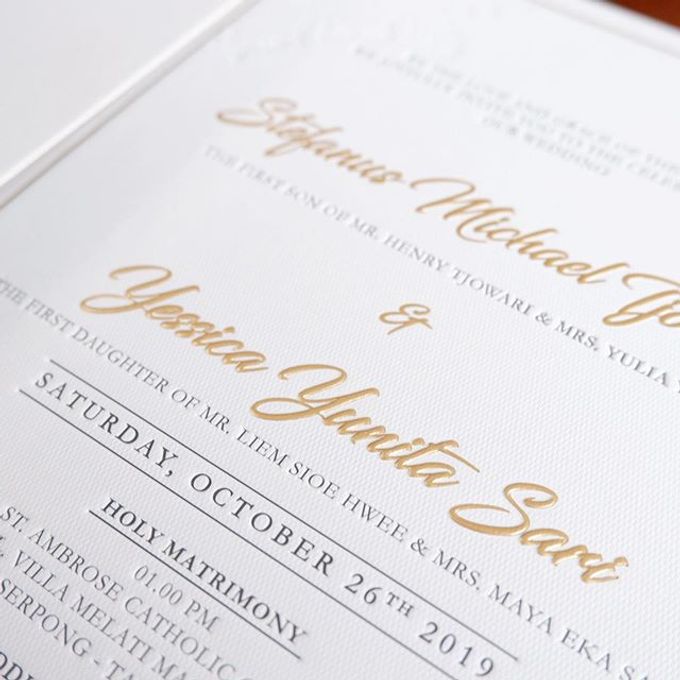 BY THE LOVE AND GRACE OF
WE JOYFULLY INVITE YOU TO THE
OUR WEDDING
Stefanus Michael
THE FIRST SON OF MR. HENRY TJOWARI & MRS. YULIA
&
Yessica Yunita Sari
THE FIRST DAUGHTER OF MR. LIEM SIOE HWEE & MRS. MAYA EKA
SATURDAY, OCTOBER 26TH 2019
HOLY MATRIMONY
01.00 PM
ST. AMBROSE CATHOLIC
VILLA MELATI
SERPONG -